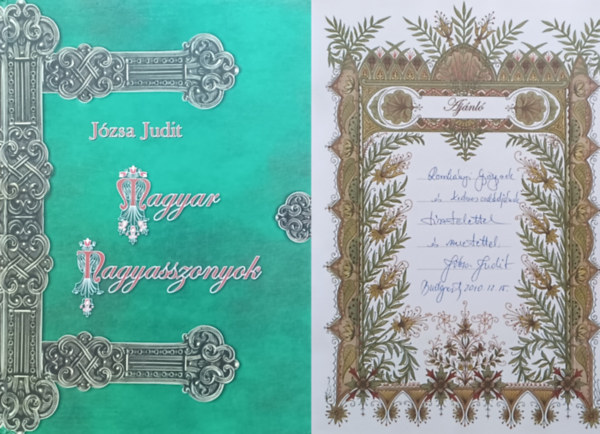 Józsa Judit
Magyar
Nagyasszonyok
Ajánló
Romhányi Györgynek
és
tisztelettel
és szeretettel
Józsa Judit
Budapest, 2010. 12.